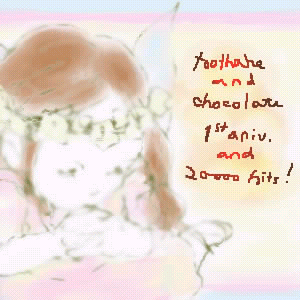 toothake
and
chocolate
1st aniv.
and
20000 hits!